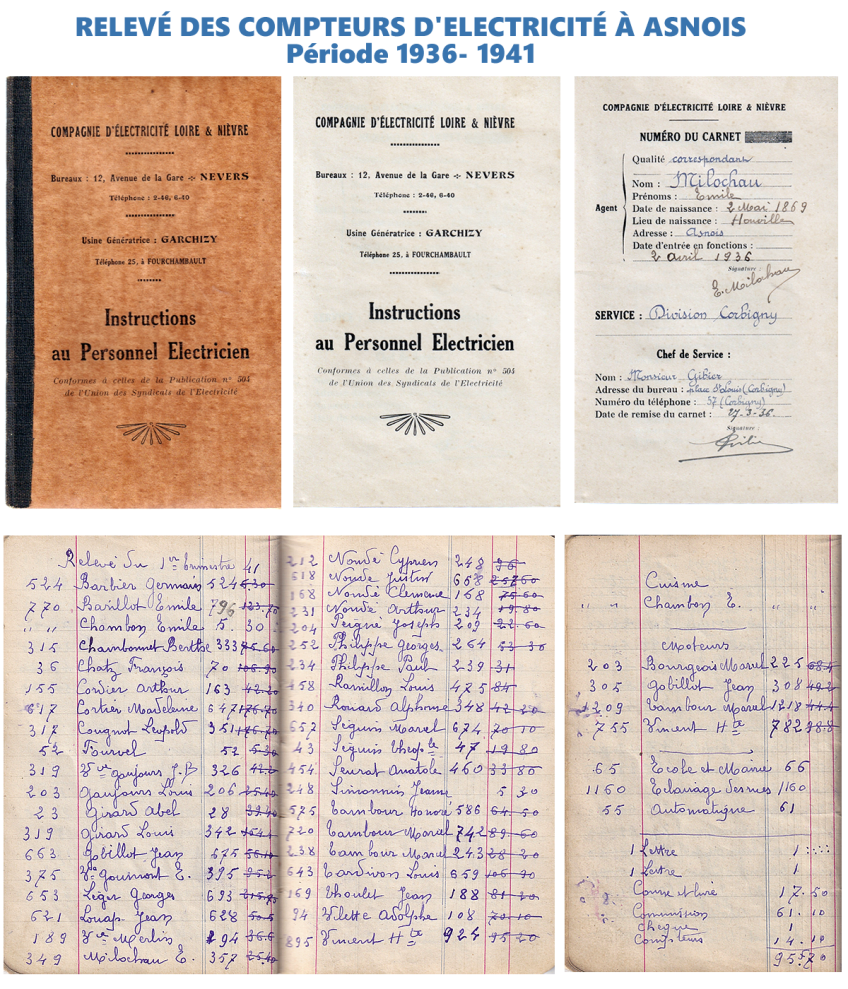 RELEVÉ DES COMPTEURS D'ELECTRICITÉ À ASNOIS
Période 1936- 1941
COMPAGNIE D'ÉLECTRICITÉ LOIRE & NIÈVRE
Bureaux : 12, Avenue de la Gare -:- NEVERS
Téléphone : 2-46, 6-40
Usine Génératrice : GARCHIZY
Téléphone 25, à FOURCHAMBAULT
Instructions
au Personnel Electricien
Conformes à celles de la Publication n° 504
de l'Union des Syndicats de l'Electricité
COMPAGNIE D'ÉLECTRICITÉ LOIRE & NIÈVRE
Bureaux : 12, Avenue de la Gare -:- NEVERS
Téléphone : 2-46, 6-40
Usine Génératrice : GARCHIZY
Téléphone 25, à FOURCHAMBAULT
Instructions
au Personnel Electricien
Conformes à celles de la Publication n° 504
de l'Union des Syndicats de l'Electricité
COMPAGNIE D'ÉLECTRICITÉ LOIRE & NIÈVRE
NUMÉRO DU CARNET
Qualité correspondant
Nom : Milochau
Prénoms : Emile
Agent
Date de naissance : 2 Mai 1869
Lieu de naissance : Honville
Adresse : Asnois
Date d'entrée en fonctions :
2 avril 1936
Signature :
E. Milochau
SERVICE : Division Corbigny
Chef de Service :
Nom : Monsieur Gibier
Adresse du bureau : Place St Louis (Corbigny)
Numéro du téléphone : 57 (Corbigny)
Date de remise du carnet : 27-3-36
Signature :
Relevé du 1er trimestre 41
524 Barbier Germain 524 6.30
770 Barillot Emile 796
" " Chambon Emile 5. 30
315 Chambonnet Berthe 333
36 Chatz François 70
155 Cordier Arthur 163
617 Cortier Madeleine 647
317 Cougnot Leopold 351
52 Fourvel 52 5.30
319 Vve Gaujours J.B 326
203 Gaujours Louis 206
23 Girard Abel 28
319 Girard Louis 342
663 Gobillot Jean 675
375 Vve Gourmont E. 395
653 Léger Georges 693
621 Louap Jean 628
189 Vve Merlin 194
349 Milochau E. 357
212 Nondé Cyprien 248
618 Nondé Justin
168 Nondé Clemence 168
231 Nondé Arthur 234 19.80
204 Peigné Joseph 209
252 Philippe Georges 264
234 Philippe Paul 239 31
458 Ramillon Louis 475 84
340 Rouard Alphonse 348 42 20
657 Seguin Marcel 674 70 10
43 Seguin 47 19 80
454 Seurat Anatole 460 33 80
248 Simonnin Jeanne 5 30
575 Tambour Honoré 586 64 50
720 Tambour Marcel 742 89.60
238 Tambour Marcel 243 28 20
643 Tardivon Louis 659 106 90
169 Thoulet Jean 188 81 20
94 Vilette Adolphe 108 70 10
895 Vincent Hte 924 95 20
Cuisine
" " Chambon E. " "
Moteurs
203 Bourgeois Marcel 225
305 Gobillot Jean 308
1209 Tambour Marcel 1218
755 Vincent Hte 782
65 Ecole et Mairie 66
1160 Eclairage des rues 1160
55 Automatique 61
1 Lettre 1
1 Lettre 1
17.50
Commission 61.10
Cheque 1
Compteurs 14.10